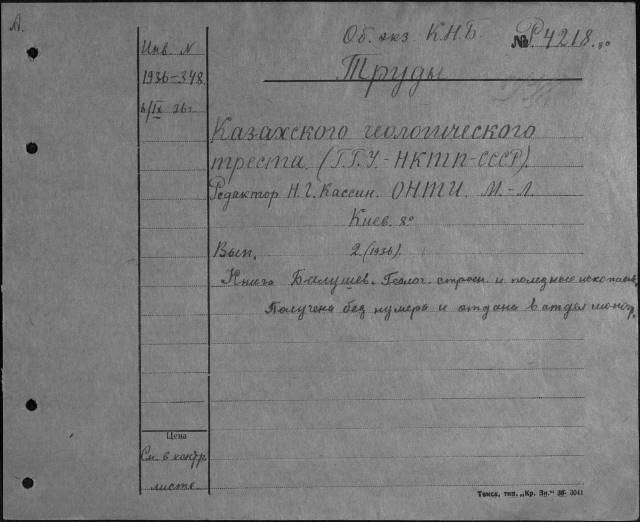 А.
Об. экз. К.Н.Б. № Р.4218. 8°
Инв. N
1936-348
6/IX 36г
Труды
Казахского геологического
треста. (Г.Г.У.-НКТП-СССР).
Редактор Н.Г. Кассин. ОНТИ. М.-Л.
Киев. 8°
Вып. 2. (1936).
Книга Балушев. Геолог. строен. и полезные ископаем.
Получена без нумера и отдана в отдел моногр.
Цена
См. в контр.
листе
Томск, тип. „Кр. Зн." 3041